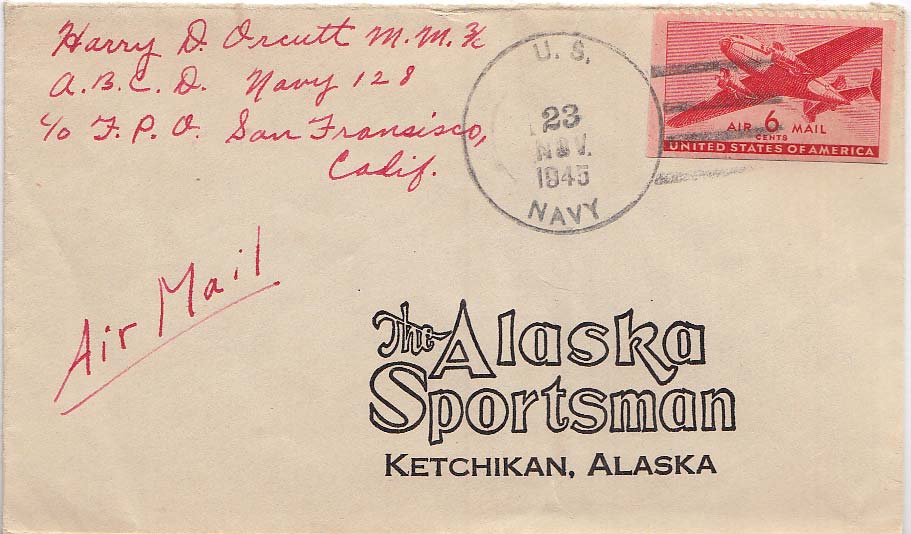 Harry D. Orcutt M.M.3/c
A.B.C.D. Navy 128
c/o F.P.O. San Fransisco,
Calif.
U.S.
23
NOV.
1945
NAVY
AIR 6 MAIL
CENTS
UNITED STATES OF AMERICA
Air Mail
The Alaska
Sportsman
KETCHIKAN, ALASKA